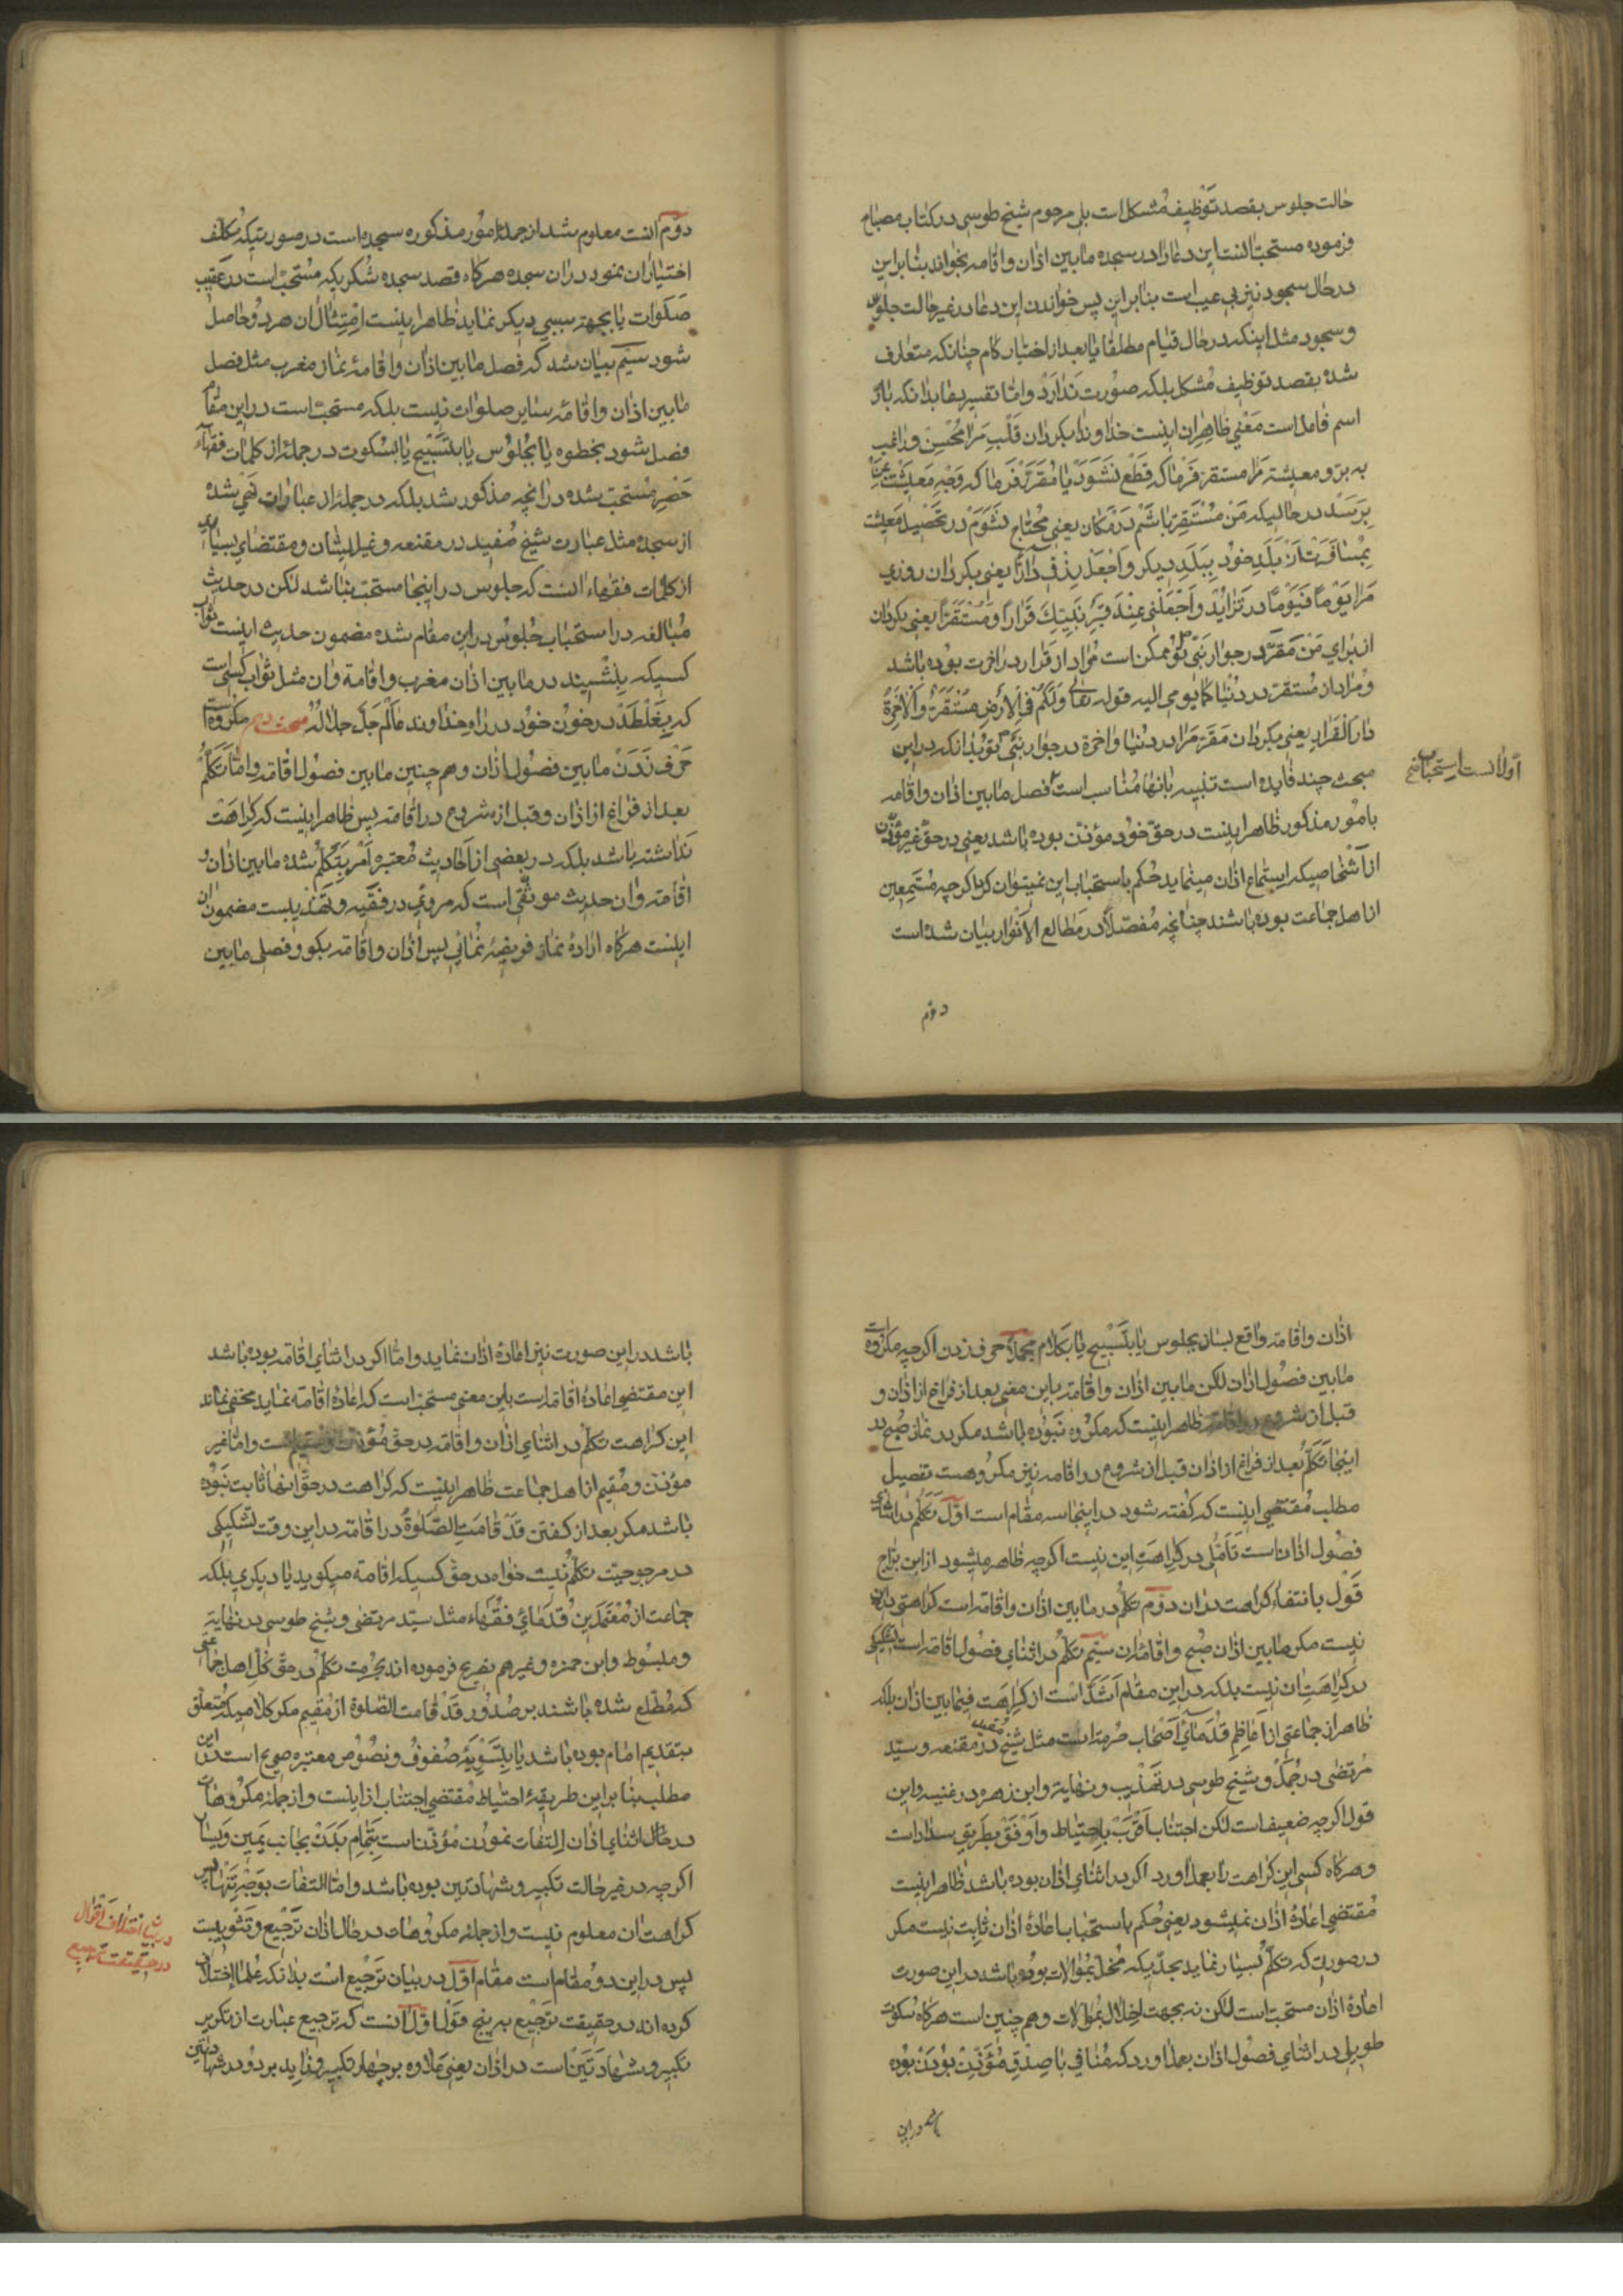 حالت جلوس بقصد توظیف مشکل است بلی مرحوم شیخ طوسی در کتاب مصباح
فرموده مستحب است این دعا را در سجده مابین اذان واقامه بخواند بنابراین
در حال سجود نیز بی عیب است بنابراین پس خواندن این دعا در غیر حالت جلوس
و سجود مثل اینکه در حال قیام مطلقا یا بعد از اختیار کام چنانکه متعارف
شده بقصد توظیف مشکل بلکه صورت ندارد و اما تفسیر دعا بدانکه بار
اسم فاعل است معنی ظاهر ان اینست خداوندا بکردان قلب مرا محسن و راغب
به بر و معیشته مرا مستقر فرما که قطع نشود یا مقرر فرما که وجه معیشت من
برسد در حالیکه من مستقر باشم در مکان یعنی محتاج نشوم در تحصیل معیشت
بمسافرت از بلد خود ببلد دیکر واجعل رزقی دارا یعنی بکردان روزی
مرا یوما فیوما در تزاید واجعلنی عند قبر نبیک قرارا ومستقرا یعنی بکردان
از برای من مقر در جوار نبی تو ممکن است مراد از قرار در اخرت بوده باشد
و مراد از مستقر در دنیا کما یومی الیه قوله تعالی ولکم فی الارض مستقر والاخرة
دار القرار یعنی بکردان مقر مرا در دنیا واخرة در جوار نبی تو بدانکه در این
مبحث چند فایده است تنبیه بانها مناسب است فصل مابین اذان واقامه
اول انست استحباب
بامور مذکور ظاهر اینست در حق خود مؤذن بوده باشد یعنی در حق غیر مؤذن
از اشخاصیکه استماع اذان مینماید حکم باستحباب این نمیتوان کرد اکرچه مستمعین
از اهل جماعت بوده باشند چنانچه مفصلا در مطالع الانوار بیان شده است
دوم
دوم انست معلوم شد از جمله امور مذکوره سجده است در صورتیکه مکلف
اختیار ان نمود در ان سجده هرکاه قصد سجده شکریکه مستحب است در عقیب
صلوات یا بجهة سببی دیکر نماید ظاهر اینست امتثال ان هر دو حاصل
شود سیم بیان شد که فصل مابین اذان واقامهٔ نماز مغرب مثل فصل
مابین اذان واقامه سایر صلوات نیست بلکه مستحب است در این مقام
فصل شود بخطوه یا بجلوس یا بتسبیح یا بسکوت در جمله از کلمات فقهاء
حصر مستحب شده در انچه مذکور شد بلکه در جمله از عبارات نهی شده
از سجده مثل عبارت شیخ مفید در مقنعه و غیر ایشان و مقتضای بسیاری
از کلمات فقهاء انست که جلوس در اینجا مستحب نباشد لکن در حدیث
مبالغه در استحباب جلوس در این مقام شده مضمون حدیث اینست ثواب
کسیکه بنشیند در مابین اذان مغرب واقامة وان مثل ثواب کسی است
که بغلطد در خون خود در راه خداوند عالم جل جلاله مبحث دهم مکروه است
حرف زدن مابین فصول اذان و هم چنین مابین فصول اقامه واما تکلم
بعد از فراغ از اذان وقبل از شروع در اقامه پس ظاهر اینست که کراهت
نداشته باشد بلکه در بعضی از احادیث معتبره امر بتکلم شده مابین اذان و
اقامه وان حدیث موثقی است که مروی در فقیه و تهذیبست مضمون ان
اینست هرکاه ارادهٔ نماز فریضه نمائی پس اذان واقامه بکو و فصلی مابین
اذان واقامه واقع بساز بجلوس یا بتسبیح یا بکلام مجملا حرف زدن اکرچه مکروه است
مابین فصول اذان لکن مابین اذان واقامه باین معنی بعد از فراغ از اذان و
قبل از شروع در اقامه ظاهر اینست که مکروه نبوده باشد مکر در نماز صبح که در
اینجا تکلم بعد از فراغ از اذان قبل از شروع در اقامه نیز مکروهست تفصیل
مطلب مقتضی اینست که کفته شود در اینجا سه مقام است اول تکلم در اثنای
فصول اذانست تاملی در کراهت این نیست اکرچه ظاهر میشود از ابن براج
قول بانتفاء کراهت در ان دوم تکلم در مابین اذان واقامه است کراهتی در ان
نیست مکر مابین اذان صبح واقامه ان سیم تکلم در اثنای فصول اقامه است تشکیکی
در کراهت ان نیست بلکه در این مقام اشد است از کراهت فیمابین اذان بلکه
ظاهر از جماعتی از اعاظم قدمای اصحاب حرمتست مثل شیخ مفید در مقنعه و سید
مرتضی در جمل و شیخ طوسی در تهذیب و نهایة وابن زهره در غنیه واین
قول اکرچه ضعیف است لکن اجتناب اقرب باحتیاط واوفق بطریق سداد است
و هرکاه کسی این کراهت را بعمل اورد اکر در اثنای اذان بوده باشد ظاهر اینست
مقتضی اعادهٔ اذان نمیشود یعنی حکم باستحباب اعادهٔ اذان ثابت نیست مکر
در صورتیکه تکلم بسیار نماید بحدیکه مخل بموالات بوده باشد در این صورت
اعادهٔ اذان مستحب است لکن نه بجهت اخلال بموالات و هم چنین است هرکاه سکوت
طویلی در اثنای فصول اذان بعمل اورد که منافی با صدق مؤذن بودن بوده
باشد در این
باشد در این صورت نیز اعادهٔ اذان نماید واما اکر در اثنای اقامه بوده باشد
این مقتضی اعادهٔ اقامه است باین معنی مستحب است که اعادهٔ اقامه نماید مخفی نماند
این کراهت تکلم در اثنای اذان واقامه در حق مؤذن و مقیم است واما غیر
مؤذن و مقیم از اهل جماعت ظاهر اینست که کراهت در حق انها ثابت نبوده
باشد مکر بعد از کفتن قد قامت الصلوة در اقامه در این وقت تشکیکی
در مرجوحیت تکلم نیست خواه در حق کسیکه اقامة میکوید یا دیکری بلکه
جماعت از معتمدین قدمای فقهاء مثل سید مرتضی و شیخ طوسی در نهایة
و مبسوط وابن حمزه و غیرهم تصریح فرموده اند بحرمت تکلم در حق کل اهل جماعتی
که مطلع شده باشند بر صدور قد قامت الصلوة از مقیم مکر کلامیکه متعلق
بتقدیم امام بوده باشد یا بتسویهٔ صفوف و نصوص معتبره صریح است در این
مطلب بنابراین طریقهٔ احتیاط مقتضی اجتناب از انست واز جمله مکروهات
در حال اثنای اذان التفات نمودن مؤذنست بتمام بدن بجانب یمین ویسار
اکرچه در غیر حالت تکبیر و شهادتین بوده باشد واما التفات بوجه تنها پس
کراهت ان معلوم نیست واز جمله مکروهات در حال اذان ترجیع و تثویبست
پس در این دو مقام است مقام اول در بیان ترجیع است بدانکه علما اختلاف
در بیان اختلاف اقوال
در حقیقت ترجیع
کرده اند در حقیقت ترجیع به پنج قول اول انست که ترجیع عبارت از تکریر
تکبیر و شهادتین است در اذان یعنی علاوه بر چهار تکبیر و نماید بر دو در شهادتین